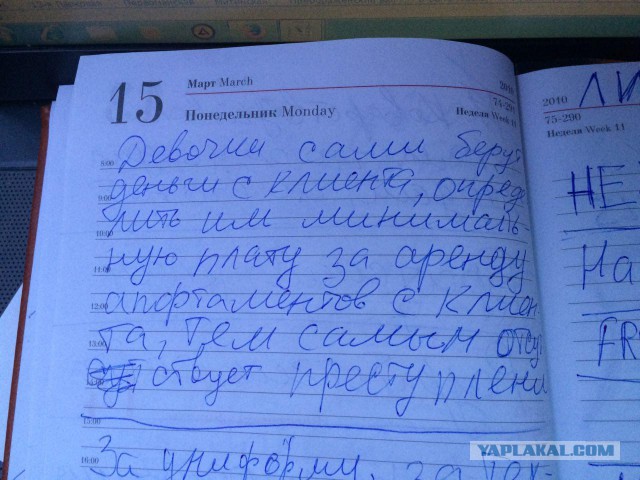 15
Март March
2010
74-291
Понедельник Monday
Неделя Week 11
8:00 Девочки сами берут
деньги с клиента, опреде
9:00
лить им минималь-
10:00
ную плату за аренду
11:00
апортаментов с клиен-
12:00
та, тем самым отсу
13:00
тствует преступлени
15:00
За униформу, за
16:00
2010
75-290
Неделя Week 11
ЛИ
НЕ
На
FR
YAPLAKAL.COM